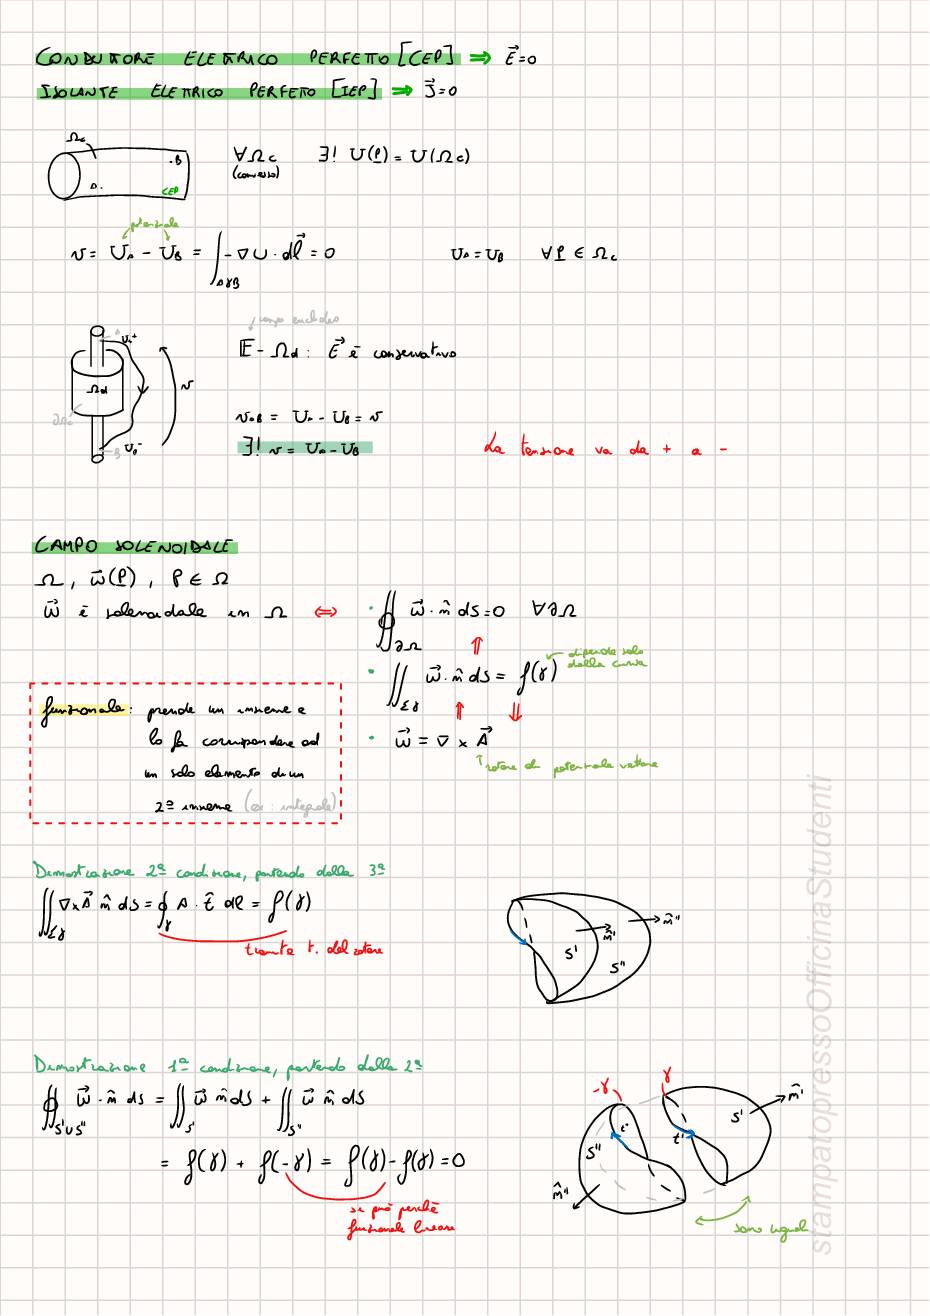 CONDUTTORE ELETTRICO PERFETTO [CEP] ⇒ E⃗=0
ISOLANTE ELETTRICO PERFETTO [IEP] ⇒ J⃗=0
Ωc
.B
A.
CEP
∀Ωc ∃! U(P) = U(Ωc)
(connesso)
potenziale
v = U_A - U_B = ∫_AγB -∇U · dl⃗ = 0
U_A = U_B ∀P ∈ Ωc
campo euclideo
𝔼 - Ωd : E⃗ è conservativo
A
U_A⁺
Ωd
v
∂Ω
B
U_B⁻
v_AB = U_A - U_B = v
∃! v = U_A - U_B
La tensione va da + a -
CAMPO SOLENOIDALE
Ω, w⃗(P), P ∈ Ω
w⃗ è solenoidale in Ω ⇔ · ∯_∂Ω w⃗ · n̂ dS = 0 ∀∂Ω
⇑
· ∬_Σγ w⃗ · n̂ dS = f(γ)
dipende solo
dalla curva
⇑ ⇓
· w⃗ = ∇ × A⃗
↑ rotore di potenziale vettore
funzionale: prende un insieme e
lo fa corrispondere ad
un solo elemento di un
2º insieme (es: integrale)
Dimostrazione 2ª condizione, partendo dalla 3ª
∬_Σγ ∇×A⃗ n̂ dS = ∮_γ A · t̂ dl = f(γ)
tramite t. del rotore
n̂'
n̂''
S'
S''
Dimostrazione 1ª condizione, partendo dalla 2ª
∯_S'∪S'' w⃗ · n̂ dS = ∬_S' w⃗ n̂ dS + ∬_S'' w⃗ n̂ dS
= f(γ) + f(-γ) = f(γ) - f(γ) = 0
si può perché
funzionale lineare
-γ
γ
n̂'
S'
t'
t'
S''
n̂''
sono uguali
stampatopressoOfficinaStudenti